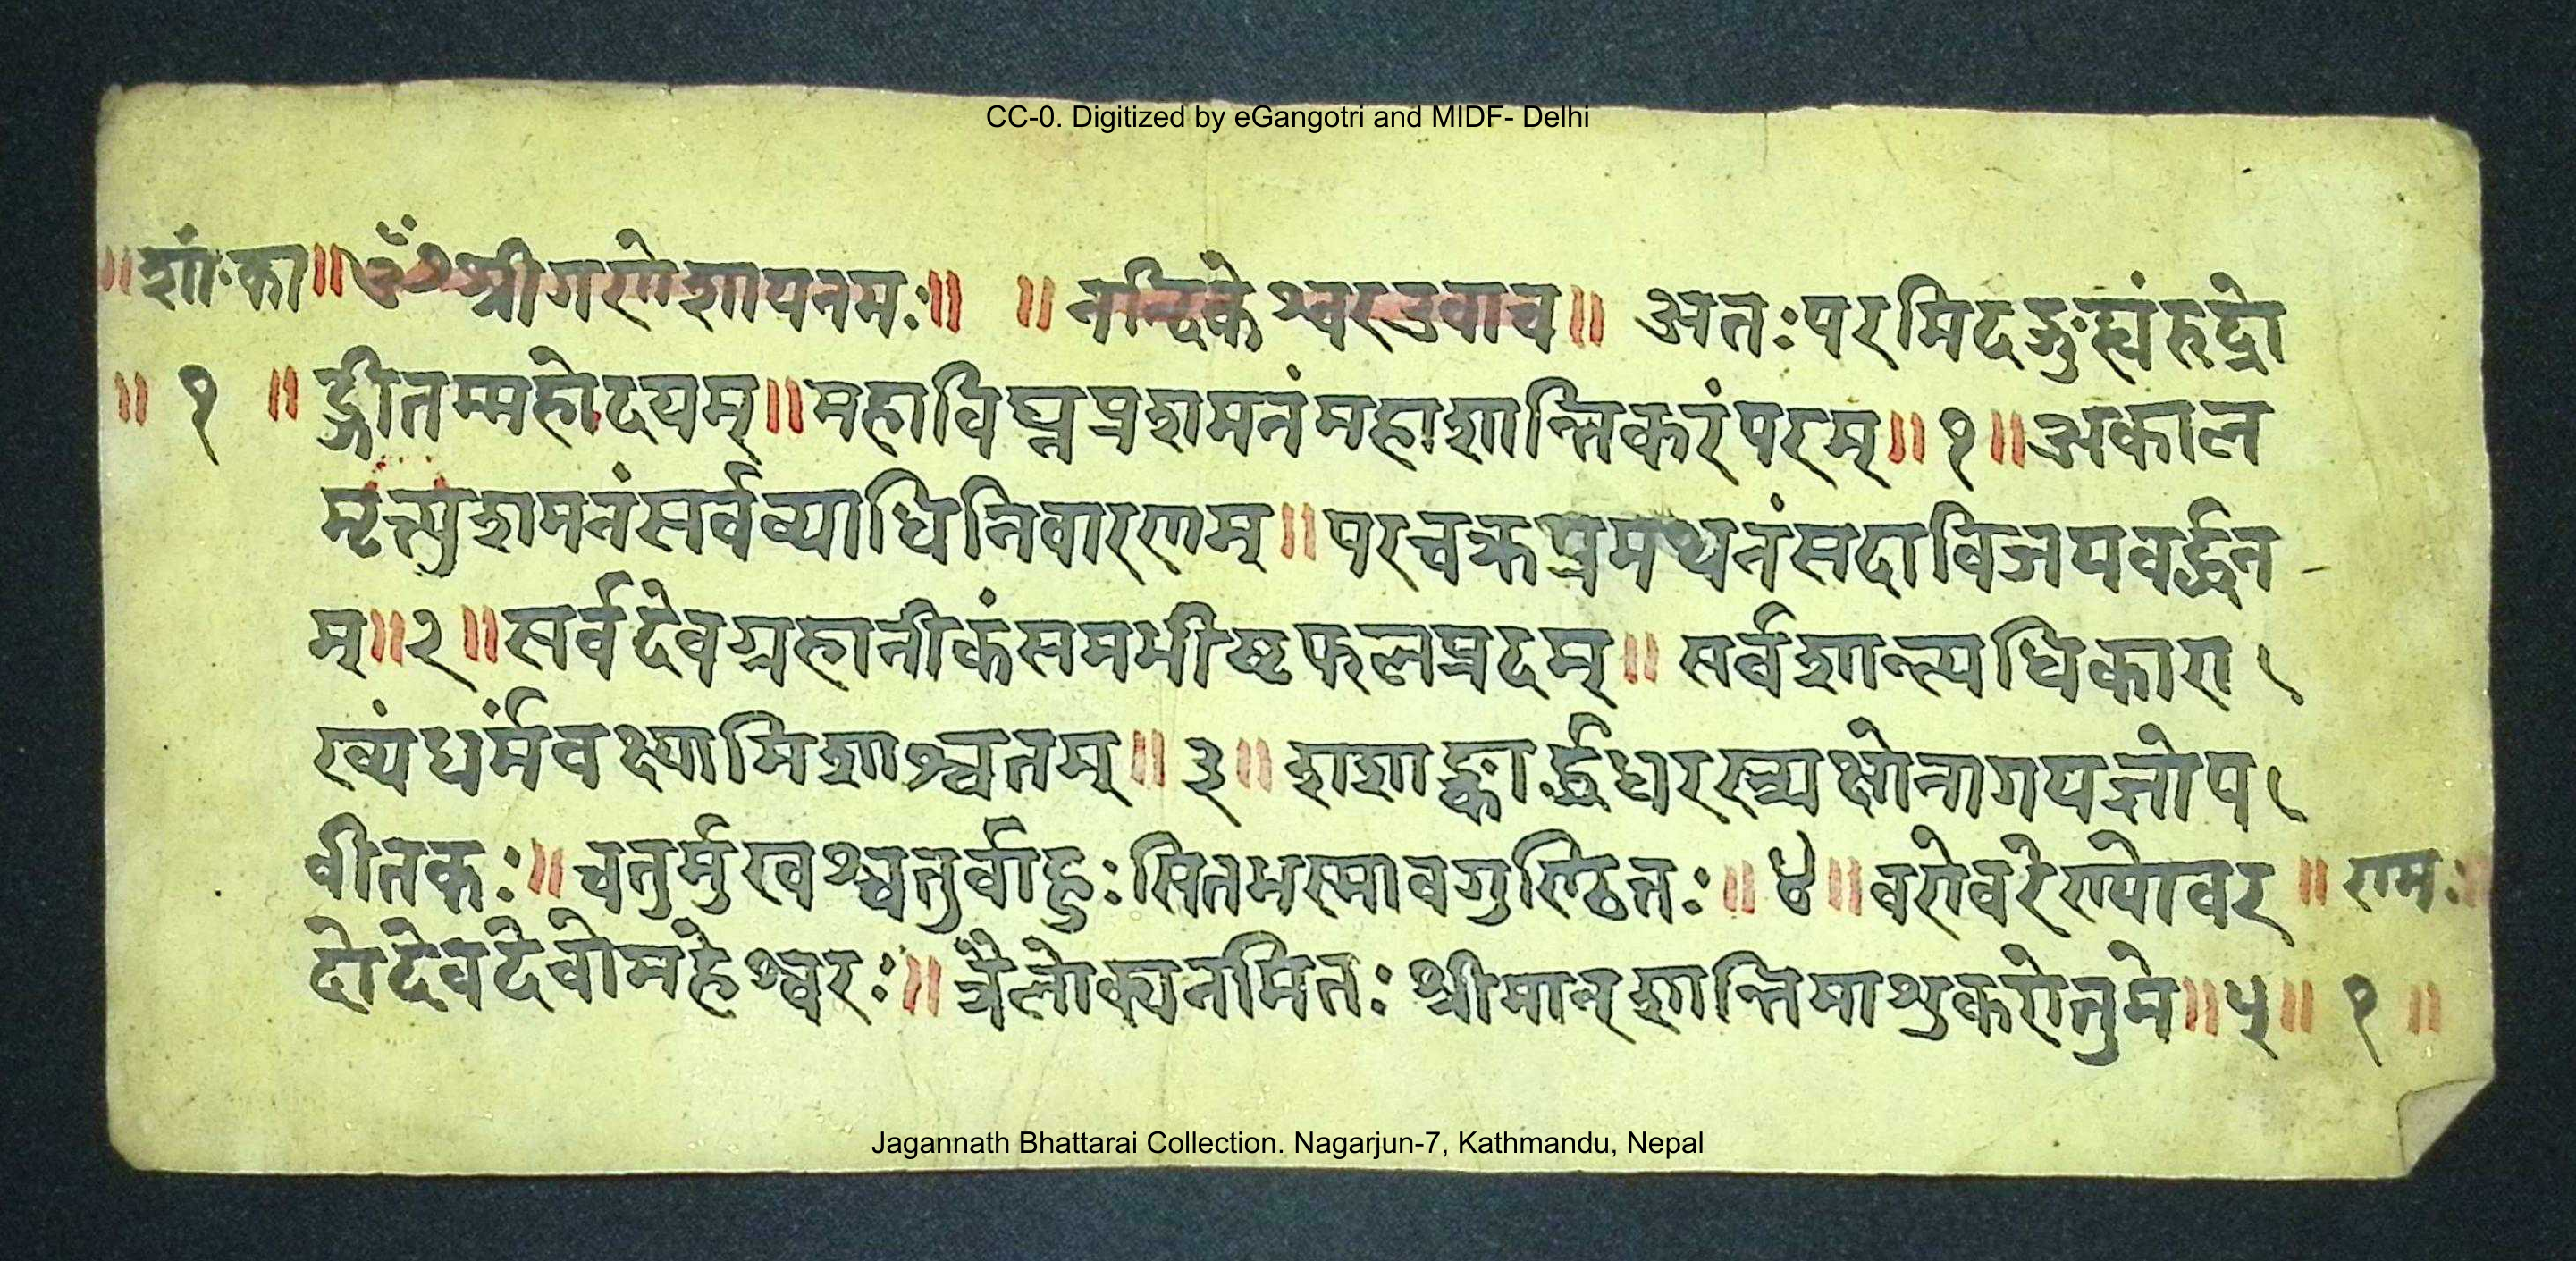 CC-0. Digitized by eGangotri and MIDF- Delhi
॥शां॰का॥ॐश्रीगणेशायनमः॥ ॥नन्दिकेश्वरउवाच॥ अतःपरमिदङ्गुह्यंरुद्रो
॥ १ ॥ द्गीतम्महोदयम्॥महाविघ्नप्रशमनंमहाशान्तिकरंपरम्॥१॥अकाल
मृत्त्युशमनंसर्वव्याधिनिवारणम्॥परचक्रप्रमथनंसदाविजयवर्द्धन
म्॥२॥सर्वदेवग्रहानीकंसमभीष्टफलप्रदम्॥सर्वशान्त्यधिकारा
ख्यंधर्मंवक्ष्यामिशाश्वतम्॥३॥शशाङ्कार्द्धधरस्त्र्यक्षोनागयज्ञोप
वीतकः॥चतुर्मुखश्चतुर्वाहुःसितभस्मावगुण्ठितः॥४॥वरोवरेण्योवर ॥रामः॥
दोदेवदेवोमहेश्वरः॥त्रैलोक्यनमितःश्रीमान्शान्तिमाशुकरोतुमे॥५॥ १ ॥
Jagannath Bhattarai Collection. Nagarjun-7, Kathmandu, Nepal